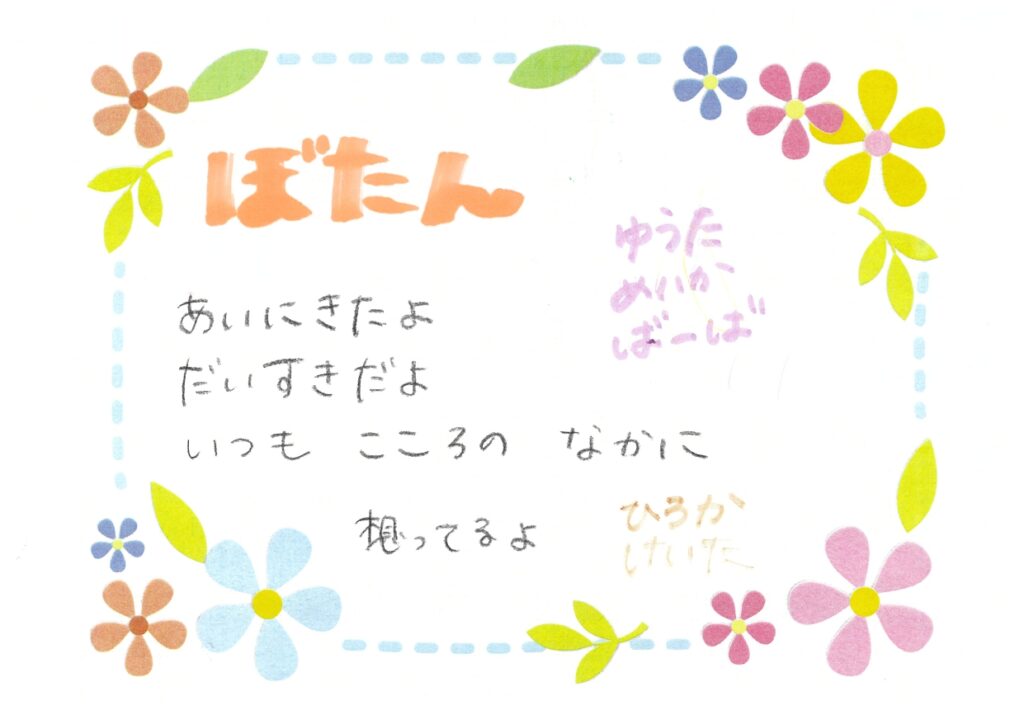 ぼたん
ゆうた
めいか
ばーば
あいにきたよ
だいすきだよ
いつも こころの なかに
想ってるよ
ひろか